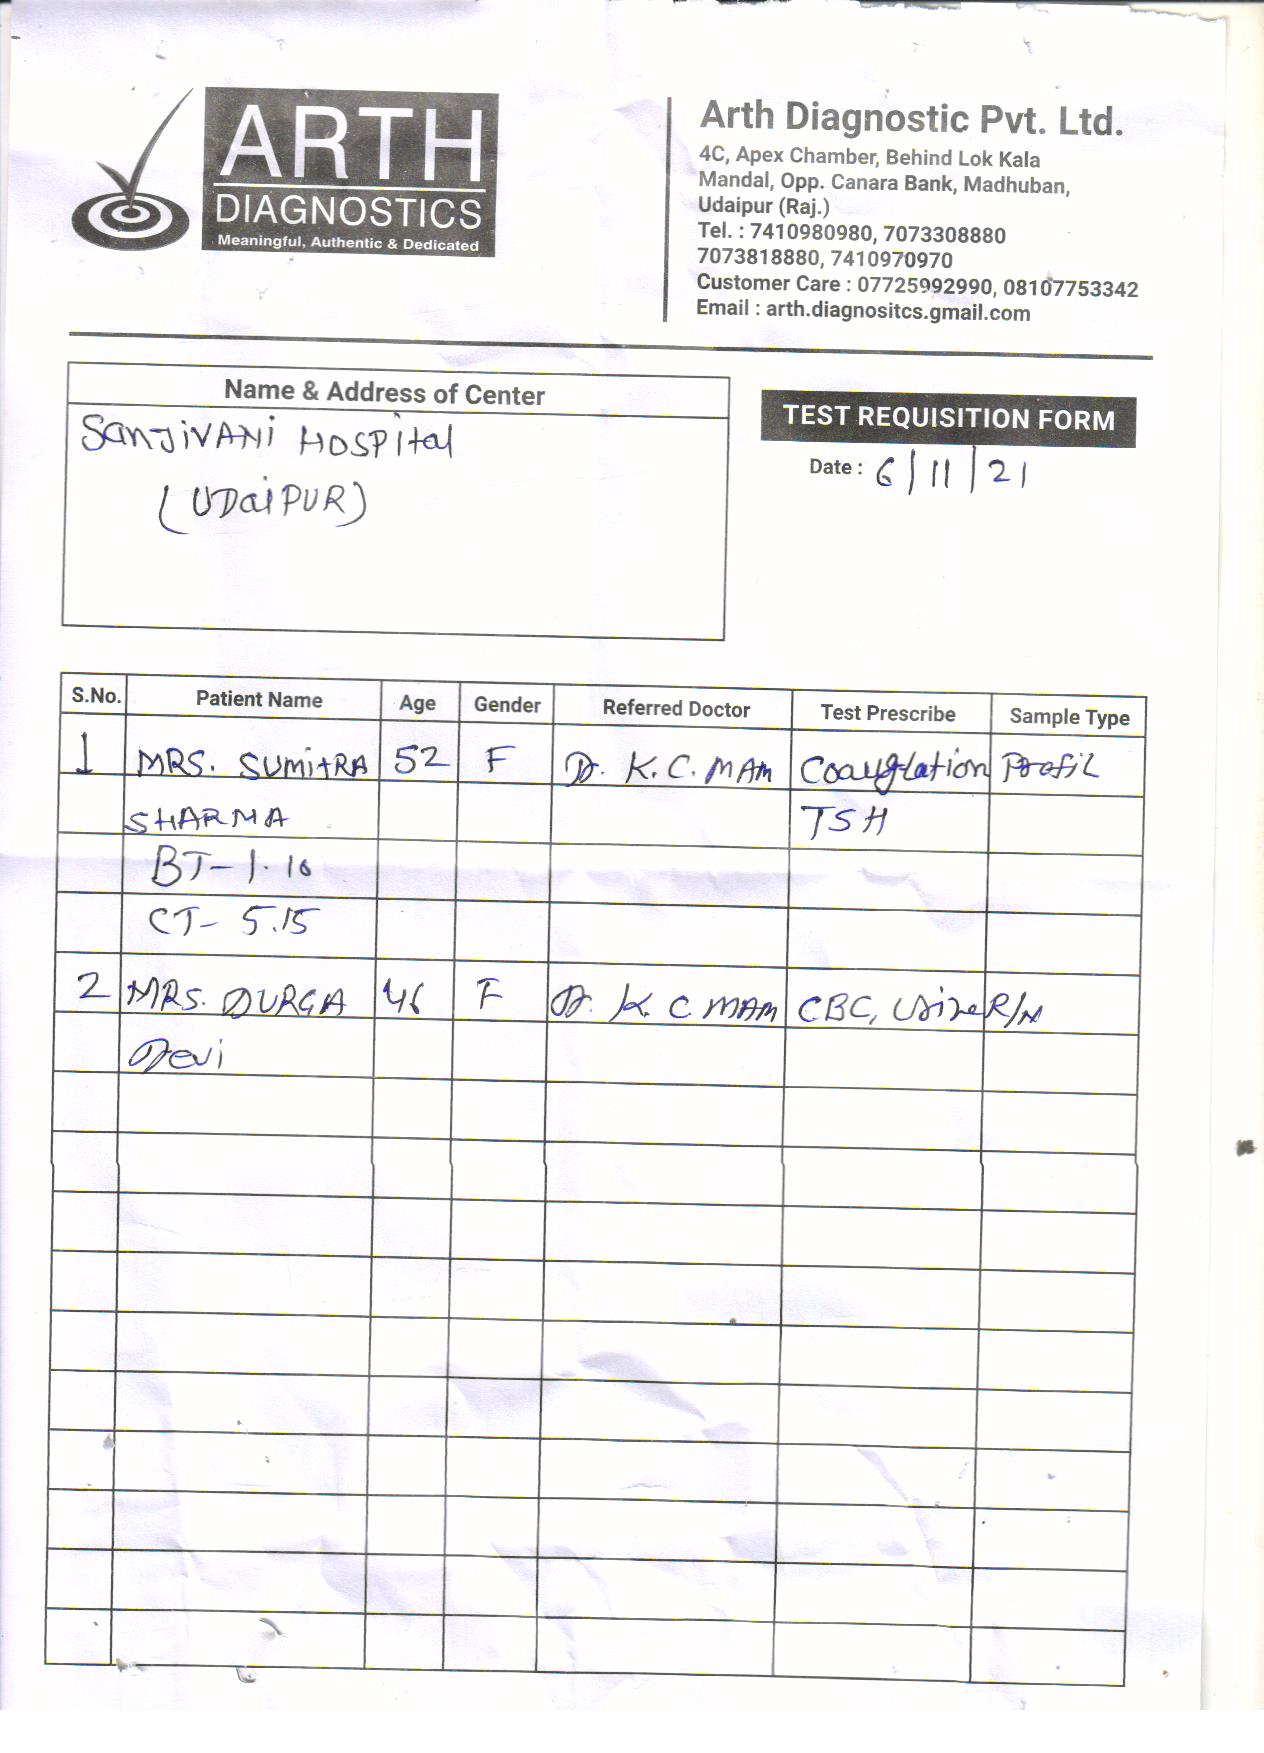 ARTH
DIAGNOSTICS
Meaningful, Authentic & Dedicated
Arth Diagnostic Pvt. Ltd.
4C, Apex Chamber, Behind Lok Kala
Mandal, Opp. Canara Bank, Madhuban,
Udaipur (Raj.)
Tel. : 7410980980, 7073308880
7073818880, 7410970970
Customer Care : 07725992990, 08107753342
Email : arth.diagnositcs.gmail.com
Name & Address of Center
SanJiVANi HOSPital
(UDaiPUR)
TEST REQUISITION FORM
Date : 6/11/21
S.No. Patient Name Age Gender Referred Doctor Test Prescribe Sample Type
1 MRS. SUMitRA 52 F Dr. K.C. MAM Coauglation Profil
SHARMA TSH
BT- 1.10
CT- 5.15
2 MRS. DURGA 46 F Dr. K. C MAM CBC, Urine R/M
Devi